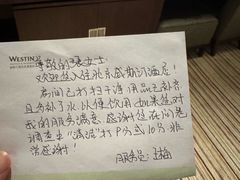 WESTIN
尊敬的张女士
欢迎您入住北京威斯汀酒店!
房间已打扫干净用品已补齐
且多补了水以便饮用 如果您对
我的服务满意 感谢您在问卷
调查里"清洁"打P分式10分 非
常感谢!
服务员: